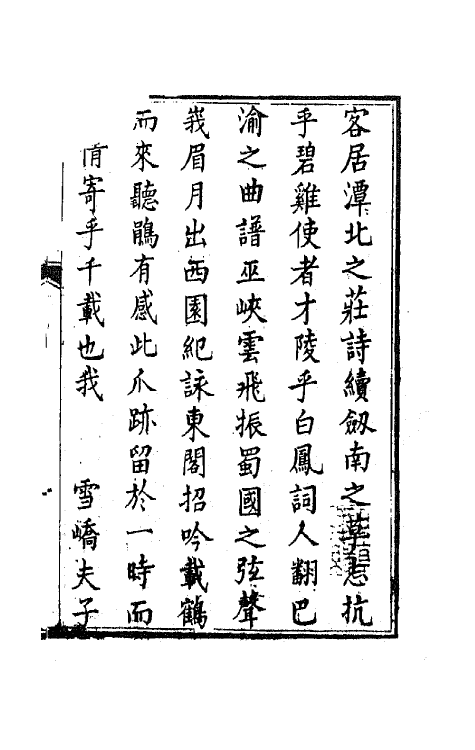 客居潭北之莊詩續劒南之草志抗
乎碧雞使者才陵乎白鳳詞人翻巴
渝之曲譜巫峽雲飛振蜀國之弦聲
峩眉月出西園紀詠東閣招吟載鶴
而來聽鵑有感此爪跡留於一時而
情寄乎千載也我　　雪嶠夫子